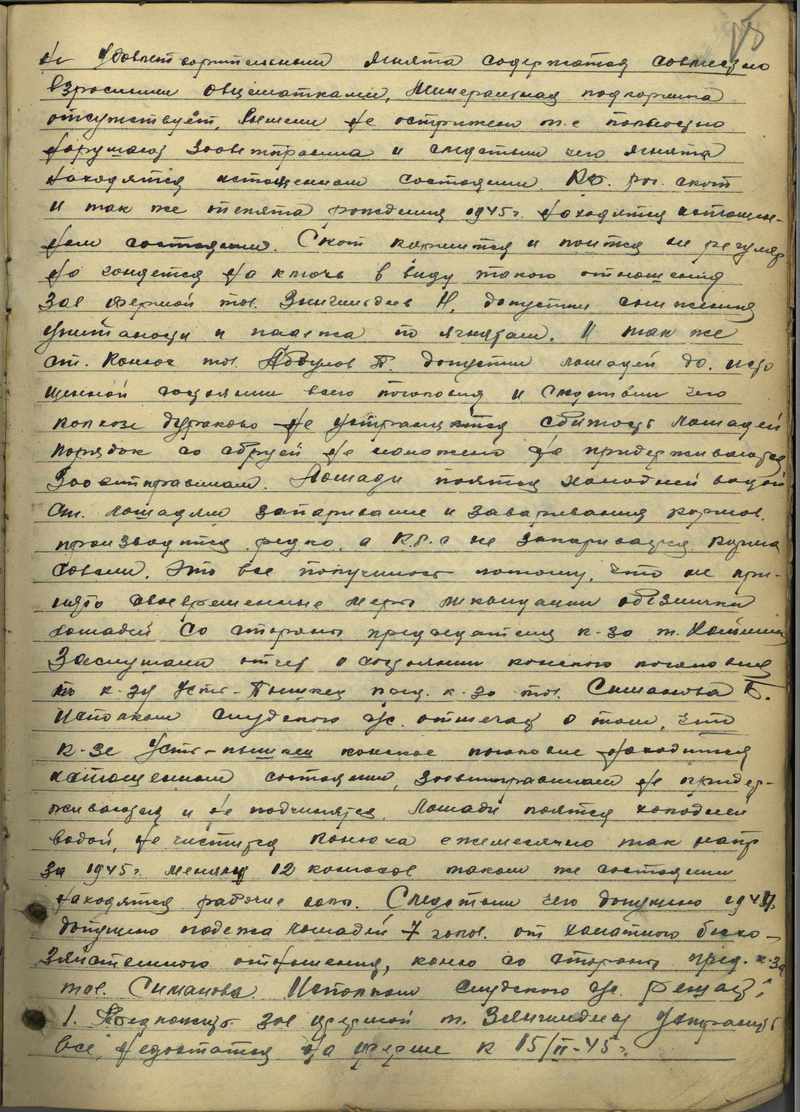 не удовлетворительными ягнята содержатся совместно
взрослыми овцематками, Минеральная подкормка
отсутствует, вымени не острижены т.е полностью
нарушают зооветправила и следствии чего ягнята
находятся истощенном состоянии. Кр. рог. скот
И так же телята рождения 1945 г. находятся истощен-
ном состоянии. Скот кормится и поится не регуляр
но гоняется на ключь в виду такого отношения
зав фермой тов. допустил снижения
упитаности и падежа по ягнятам. И так же
ст. Конюх тов. Абдулов допустил лошадей до. исто
щенной состоянии всего поголовия и следствии чего
колхозе не устраняется сбитость лошадей
порядок со сбруей не налажено не придерживаются
Зооветправилам. Лошади поятся холодной водой
лошадям запаривание и заваривания кормов.
производится редко. а К.Р.С не запаривается корма
совсем. Это все получилось потому, что не при-
нято своевременные меры ликвидации обезлички
лошадей со стороны председателя к-за т.
Заслушали отчет о состоянии конского поголовия
по к-зу Усть-Пышкец пред. к-за тов. Симанова
Исполком Слудского с/с. отмечает о том, что
к-зе Усть-пышкец конское поголовие находится
истощенном состоянии, зооветправилам не придер-
живаются и не подчиняется. Лошади поятся холодной
водой, не чистится конюха ежемесячно так напр
За 1945 г. менял 12 конюхов таком же состоянии
находятся рабочие волы. Следствии чего допущено 1944
допущено падежа лошадей 7 голов. от халатного бесхо-
зяйственного отношения, коню со стороны пред. к-за
тов. Симанова. Исполком Слудского с/с. решает:
1. Предложить зав фермой т. устранить
все недостатки на ферме к 15/II-45 г.